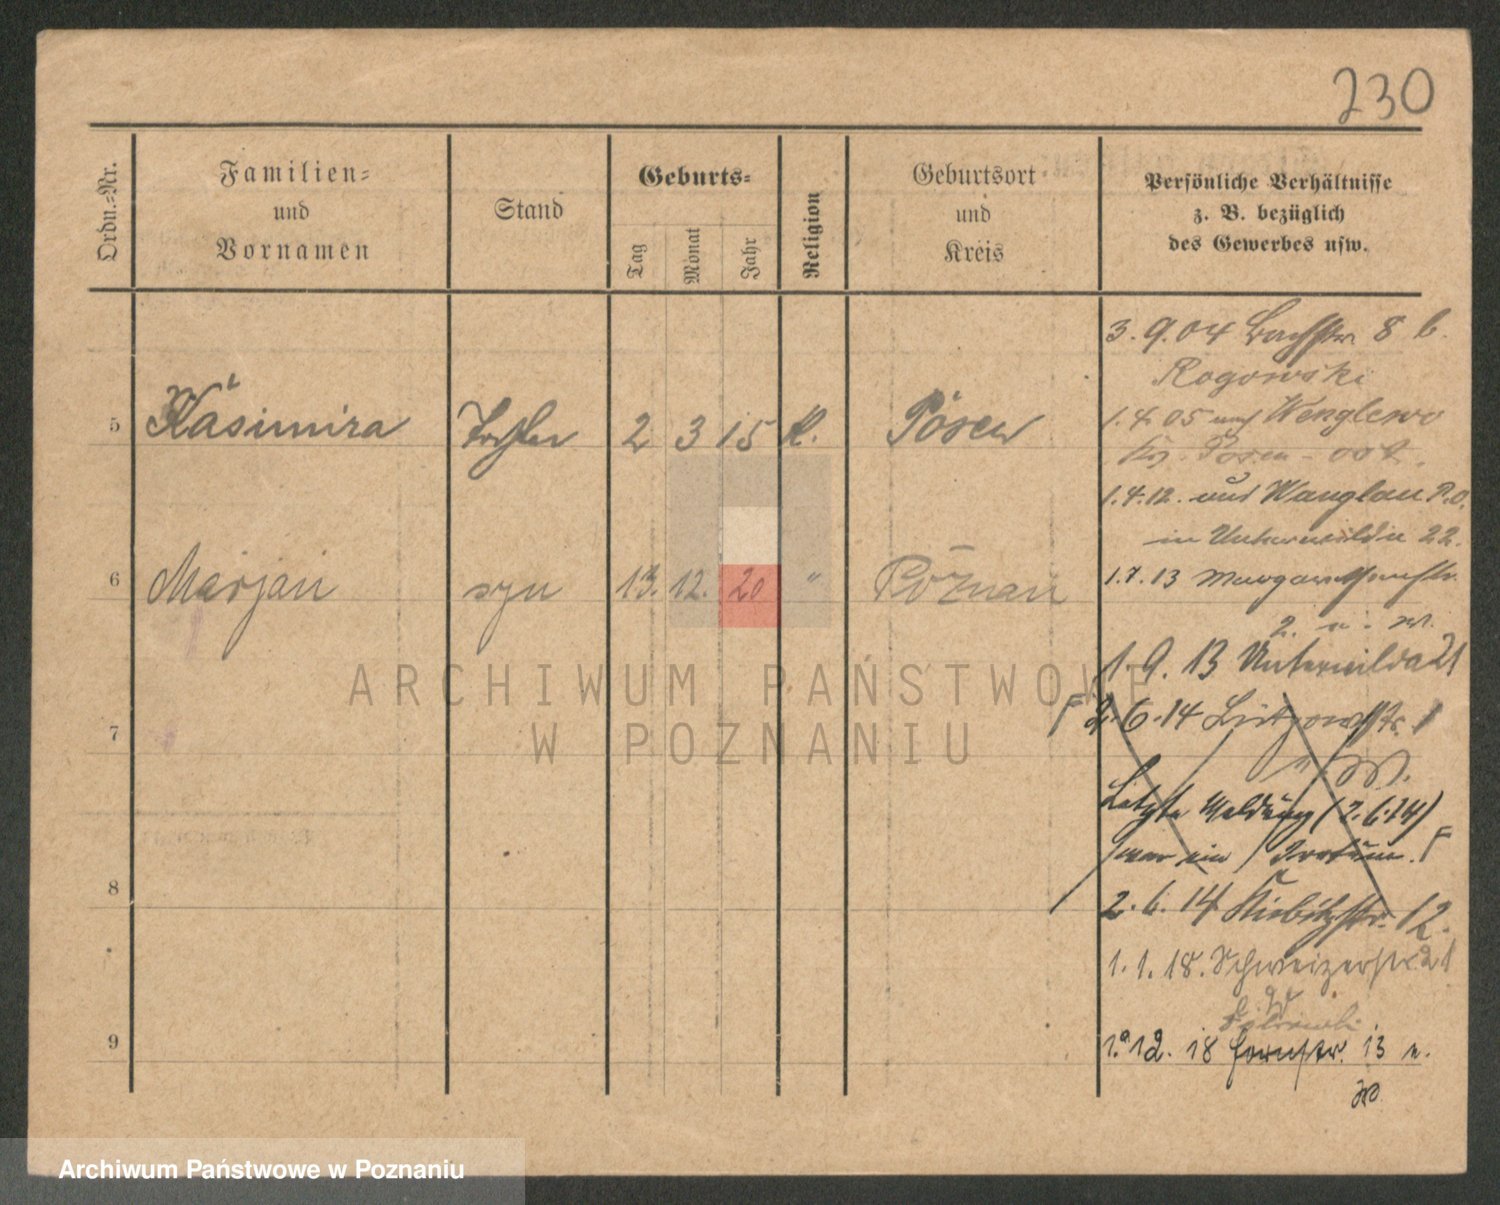 230
Ordn.-Nr.
Familien-
und
Vornamen
Stand
Geburts-
Tag
Monat
Jahr
Religion
Geburtsort
und
Kreis
Persönliche Verhältnisse
z. B. bezüglich
des Gewerbes usw.
3.9.04 Bachstr. 8 b.
Rogowski
5 Kasimira Tochter 2 3 15 K. Posen
1.4.05 Wenglewo
Kr. Posen-ost.
1.4.12. Wanglau P.O.
in Unterwilda 22.
6 Marjan syn 13. 12. 20 " Poznan
1.7.13 Margarethenstr.
2.
1.9.13 Unterwilda 21
7
F 2.6.14 Lützowstr. 1
Letzte Meldung (2.6.14)
war ein Irrtum. F
8
2.6.14 Kiebitzstr. 12.
1.1.18. Schweizerstr. 21
9
1.12.18 13
ARCHIWUM PAŃSTWOWE
W POZNANIU
Archiwum Państwowe w Poznaniu